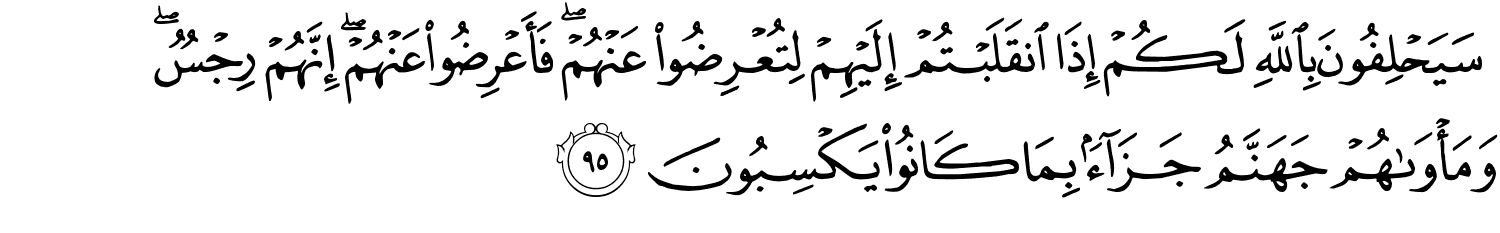 سَيَحْلِفُونَ بِٱللَّهِ لَكُمْ إِذَا ٱنقَلَبْتُمْ إِلَيْهِمْ لِتُعْرِضُوا۟ عَنْهُمْ ۖ فَأَعْرِضُوا۟ عَنْهُمْ ۖ إِنَّهُمْ رِجْسٌ ۖ
وَمَأْوَىٰهُمْ جَهَنَّمُ جَزَآءًۢ بِمَا كَانُوا۟ يَكْسِبُونَ ٩٥